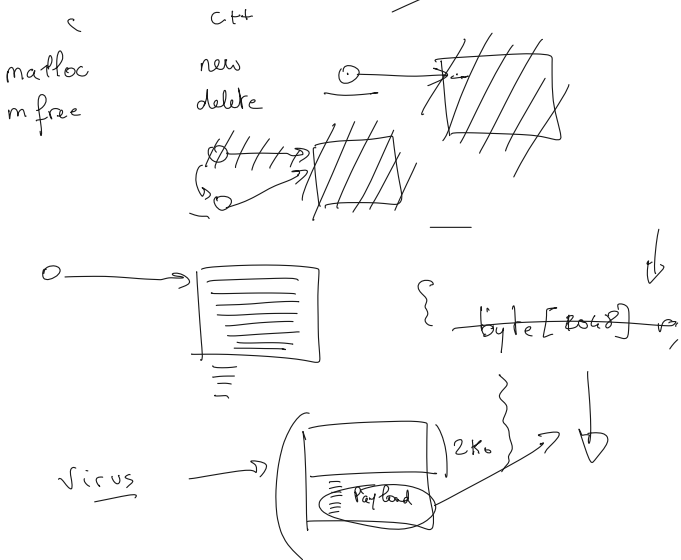 C
C++
malloc
mfree
new
delete
byte[2048]
2Ko
Virus
Payload